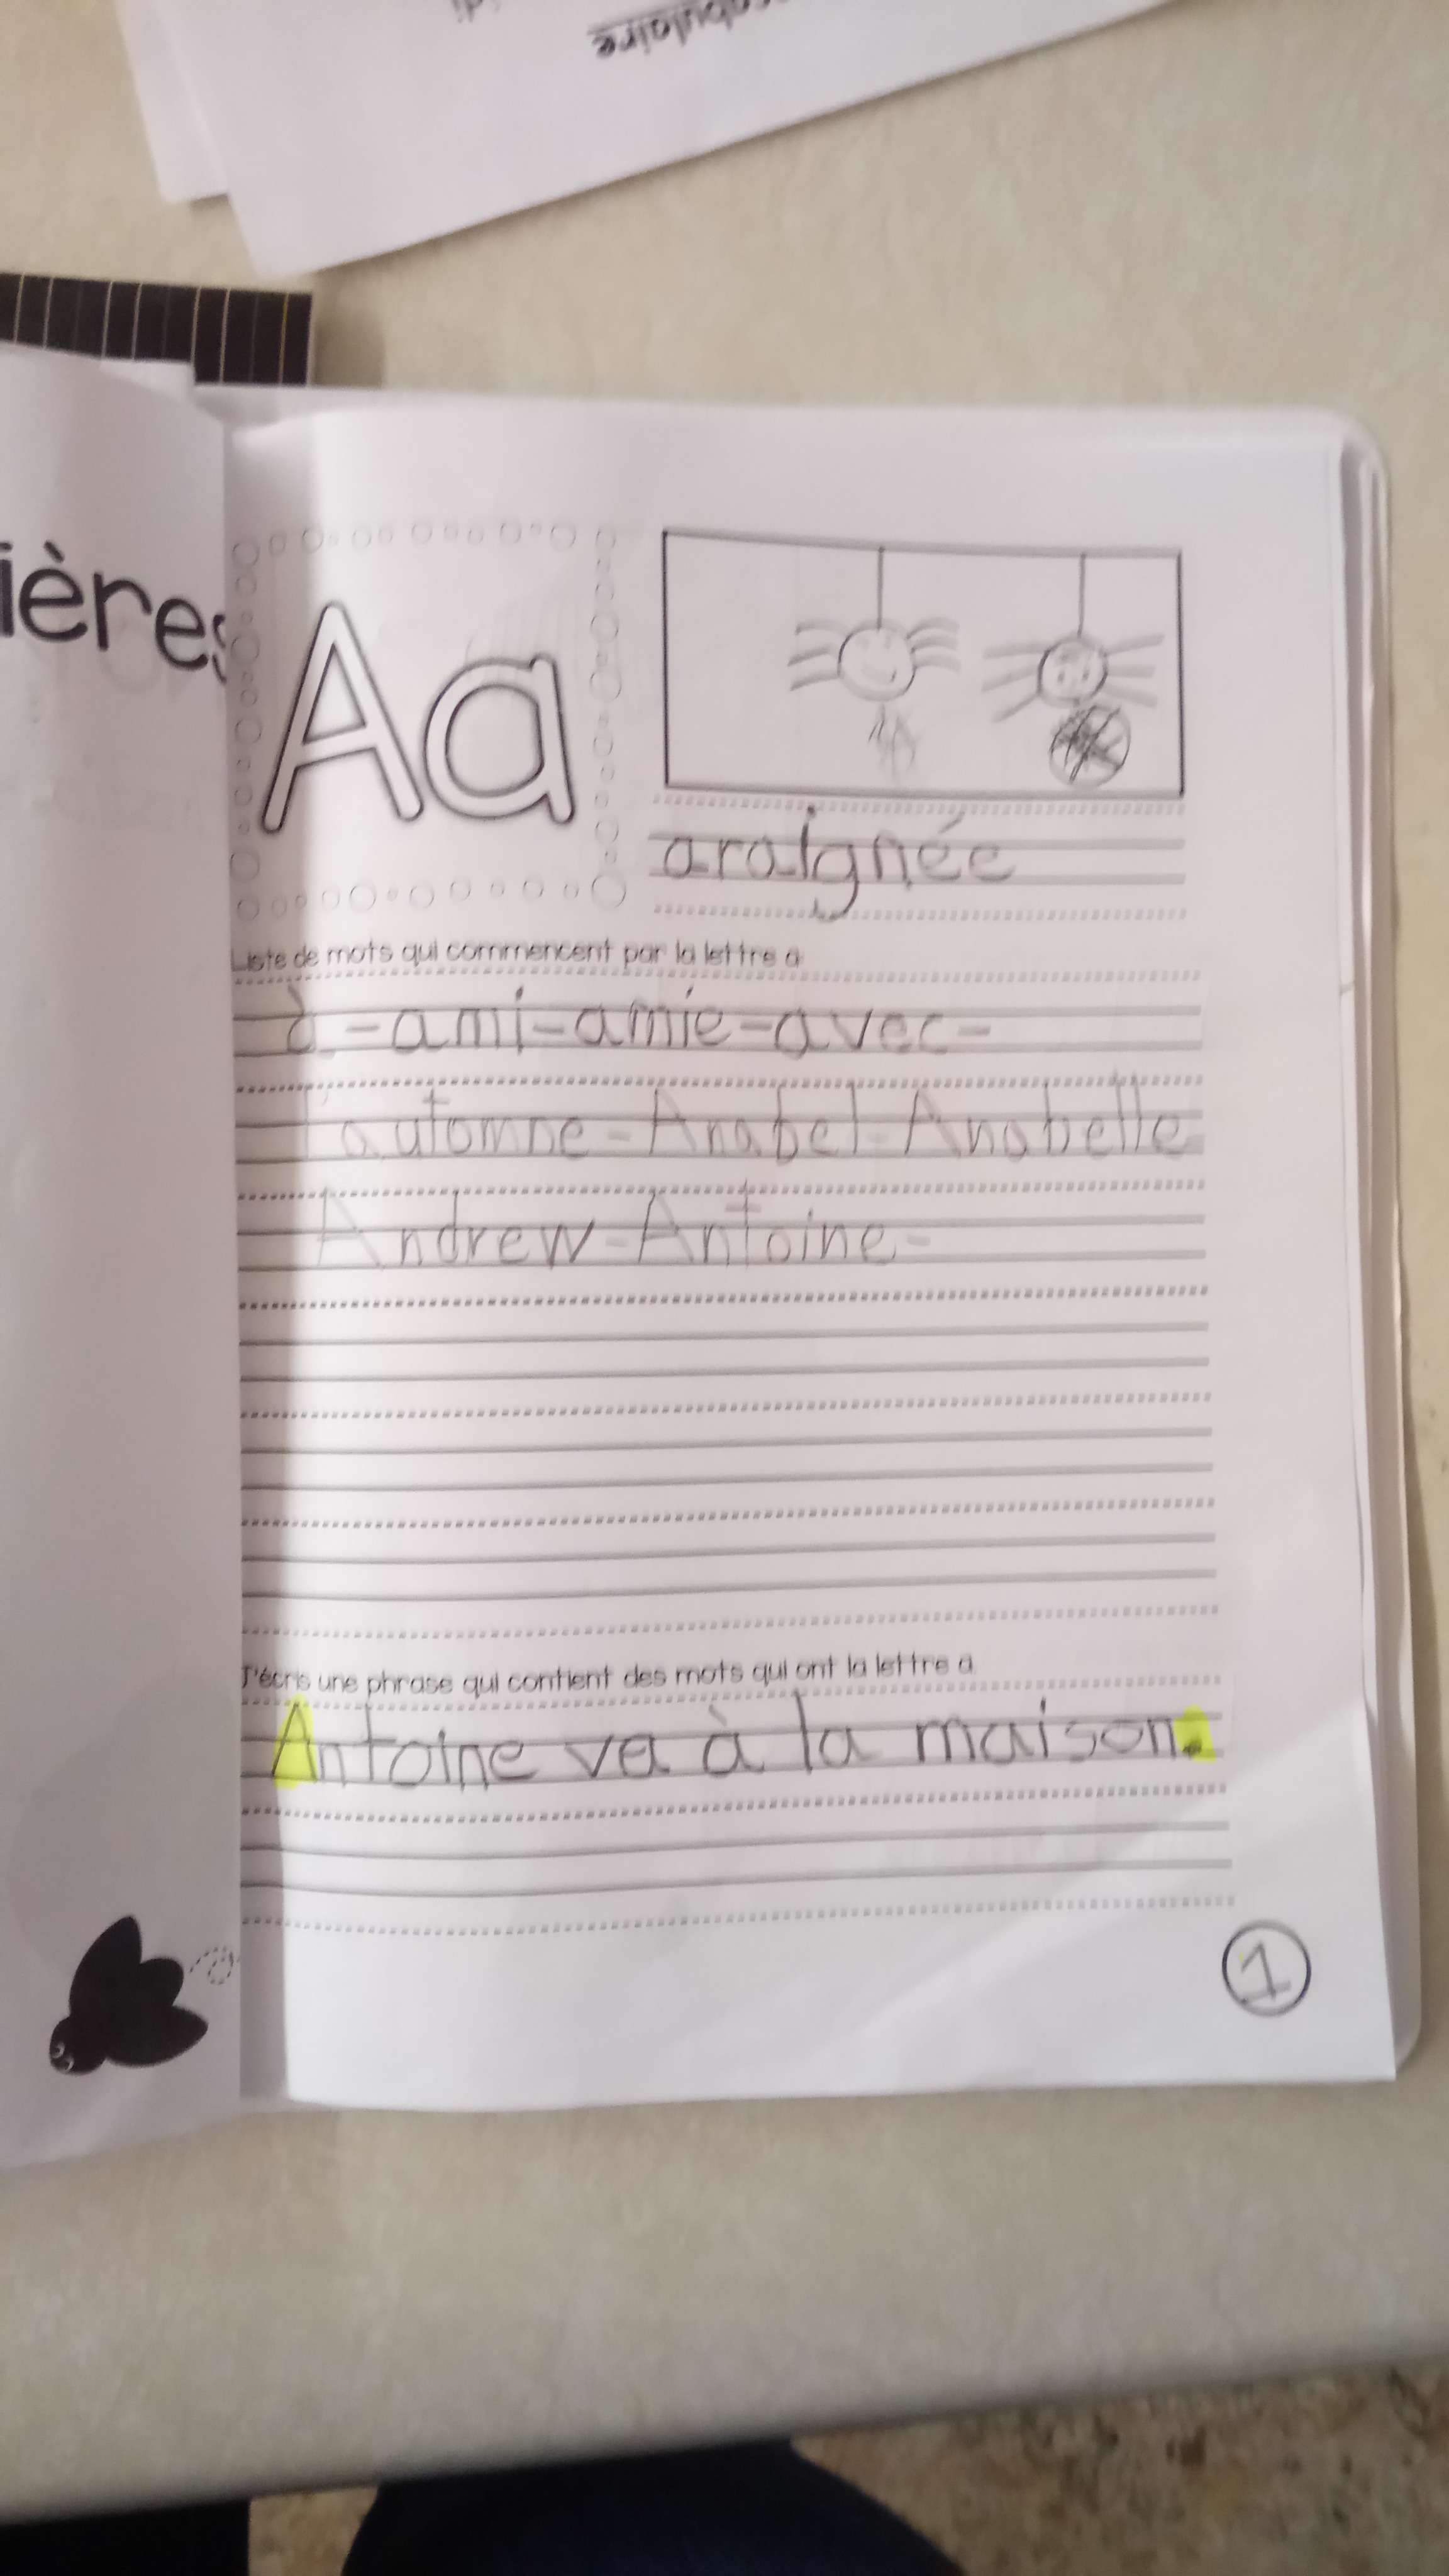 cabulaire
ières
Aa
araignée
Liste de mots qui commencent par la lettre a
à - ami - amie - avec -
l'automne - Anabel - Anabelle
Andrew - Antoine -
J'écris une phrase qui contient des mots qui ont la lettre a
Antoine va à la maison.
1